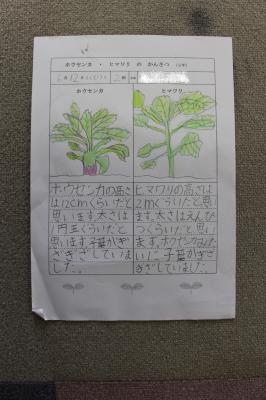 ホウセンカ ・ ヒマワリ の かんさつ
6月12日 2組
ホウセンカ ヒマワリ
ホウセンカの高さ
は12cmくらいだと
思います。太さは
1円玉くらいだと
思います。子葉がぎ
ざぎざしていま
した。
ヒマワリの高さは
2mくらいだと思い
ます。太さはえんぴ
つくらいだと思い
ます。ホウセンカみた
いに子葉がぎざ
ぎざしていました。